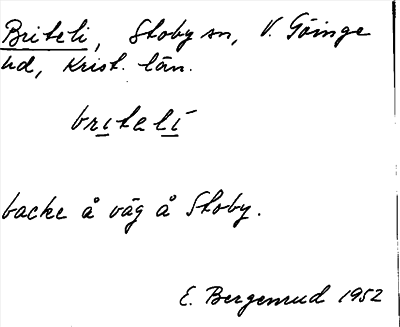 Briteli, Stoby sn, V. Göinge
hd, Krist. län.
britelí
backe å väg å Stoby.
E. Bergenrud 1952